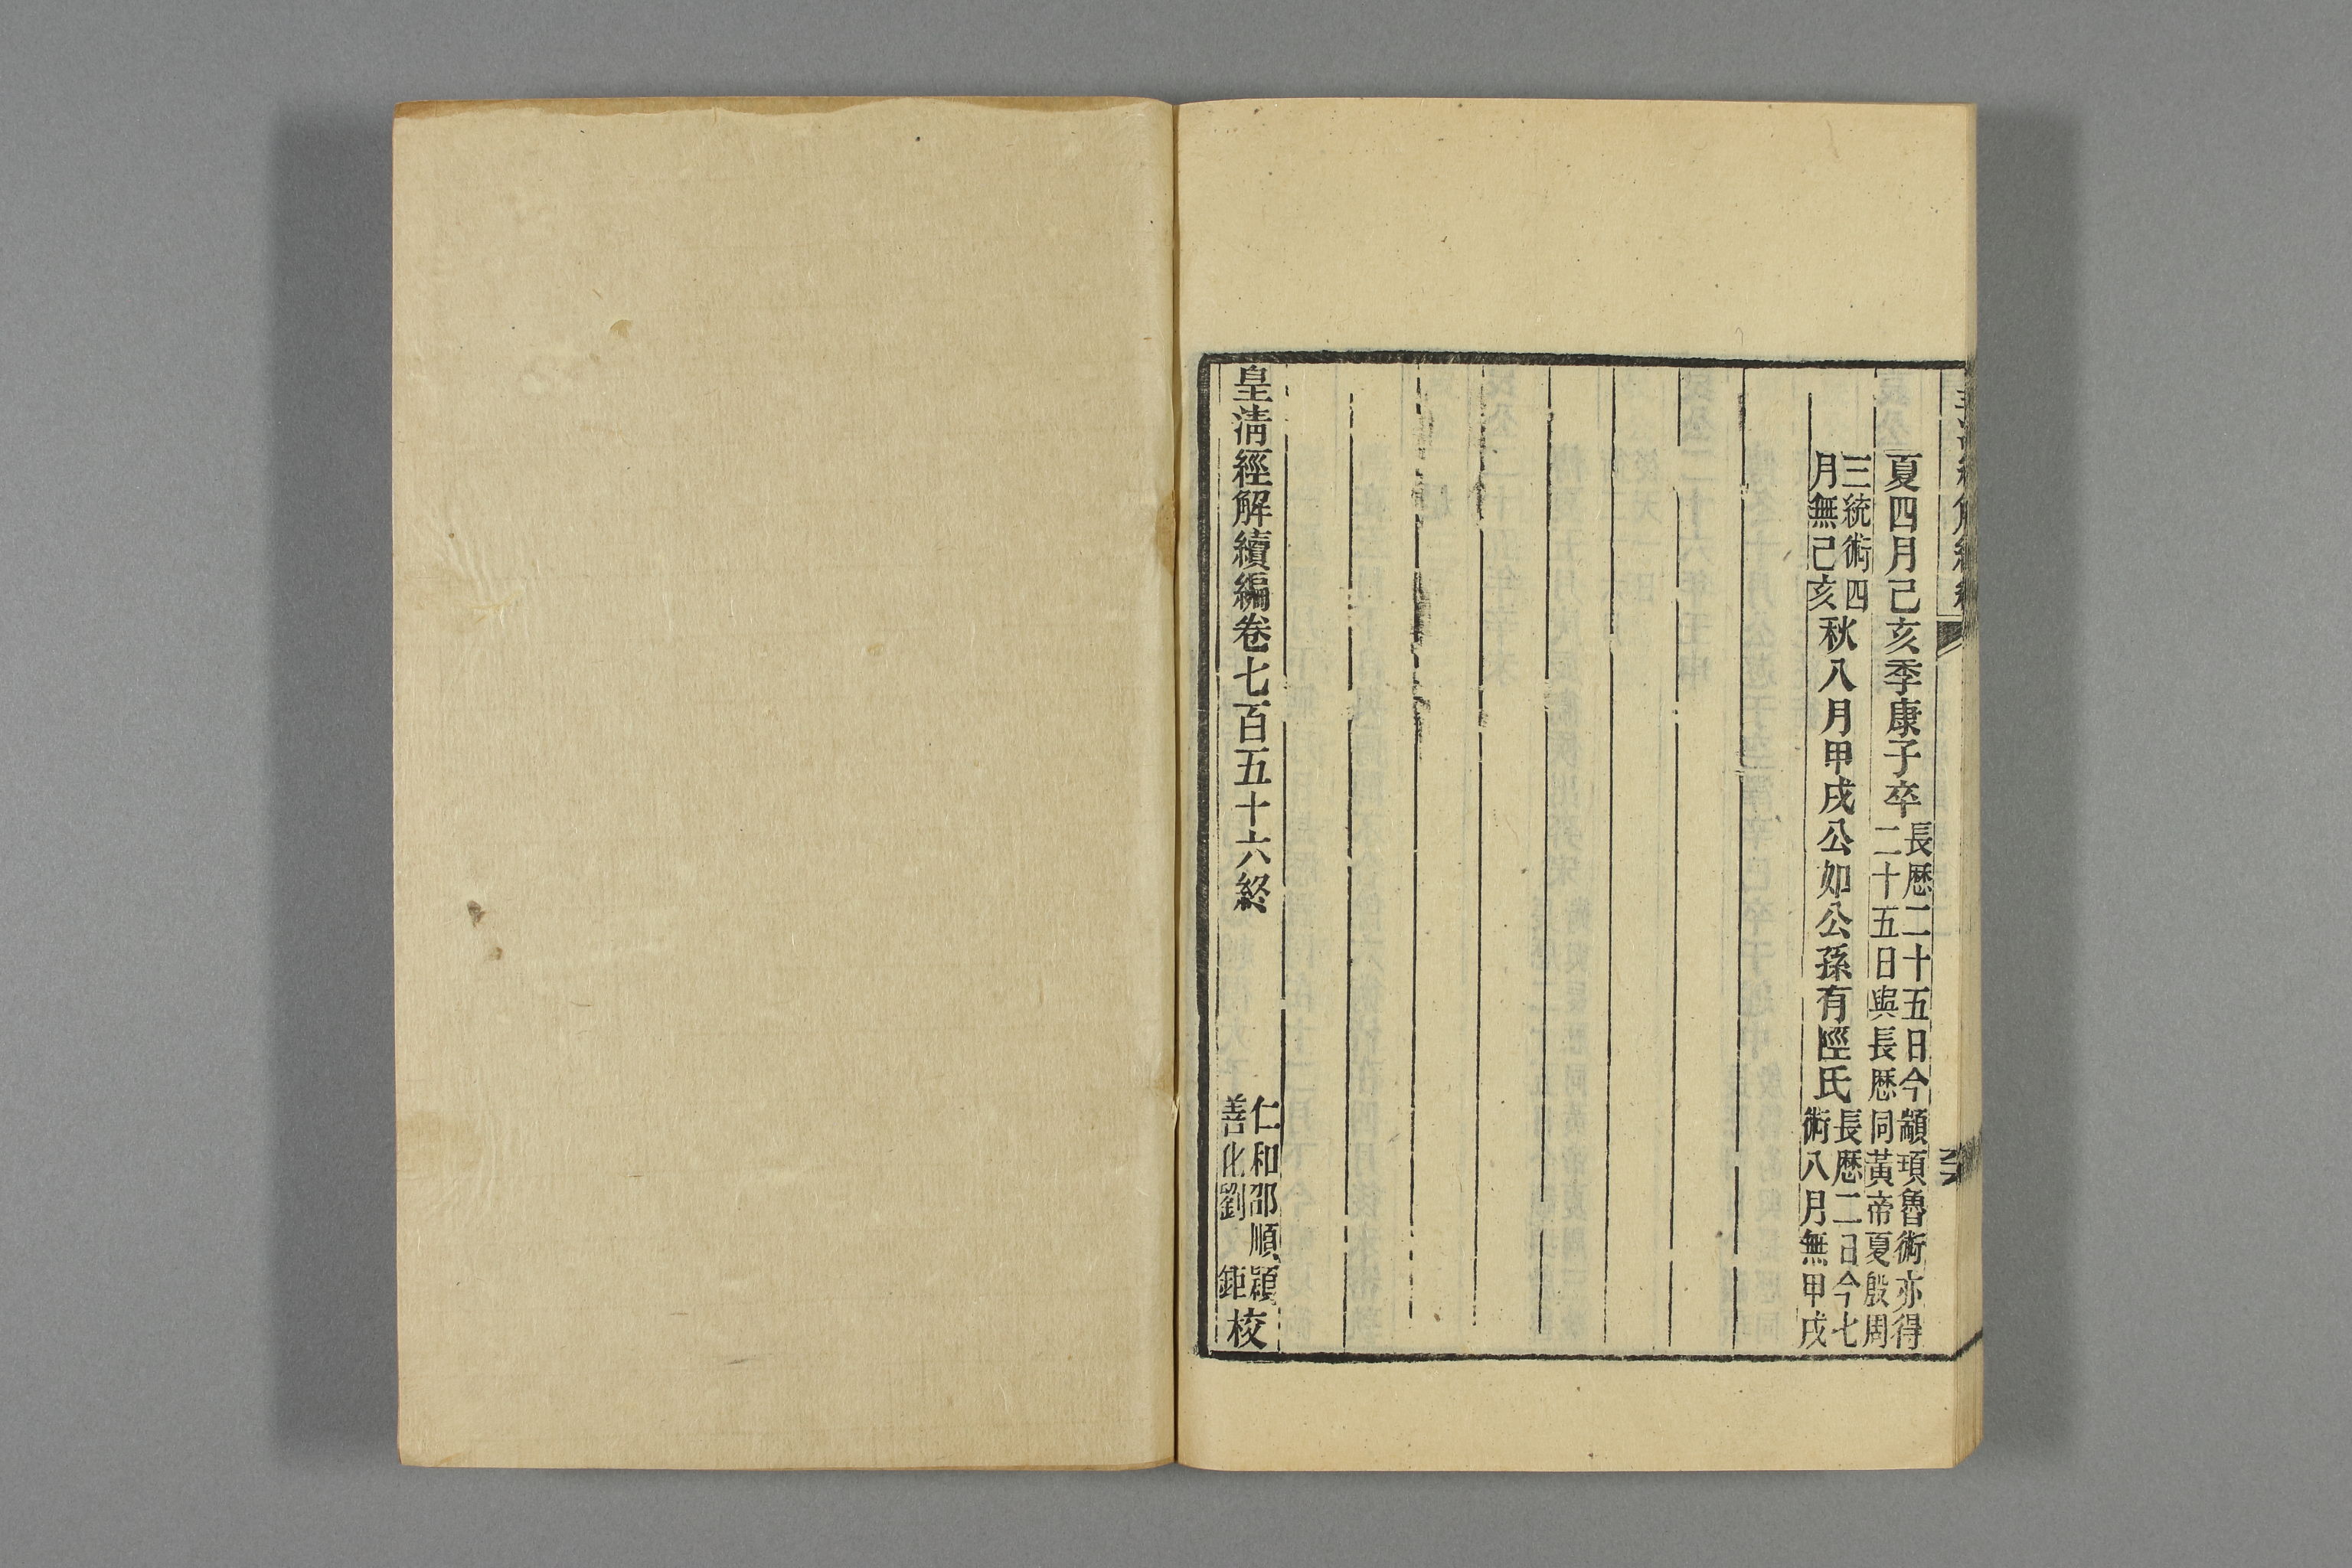 夏四月己亥季康子卒長厯二十五日今顓頊魯術亦得二十五日與長厯同黃帝夏殷周
三統術四月無己亥秋八月甲戌公如公孫有陘氏長厯二日今七術八月無甲戌
皇清經解續編卷七百五十六終
仁和邵順穎
善化劉鉅
校